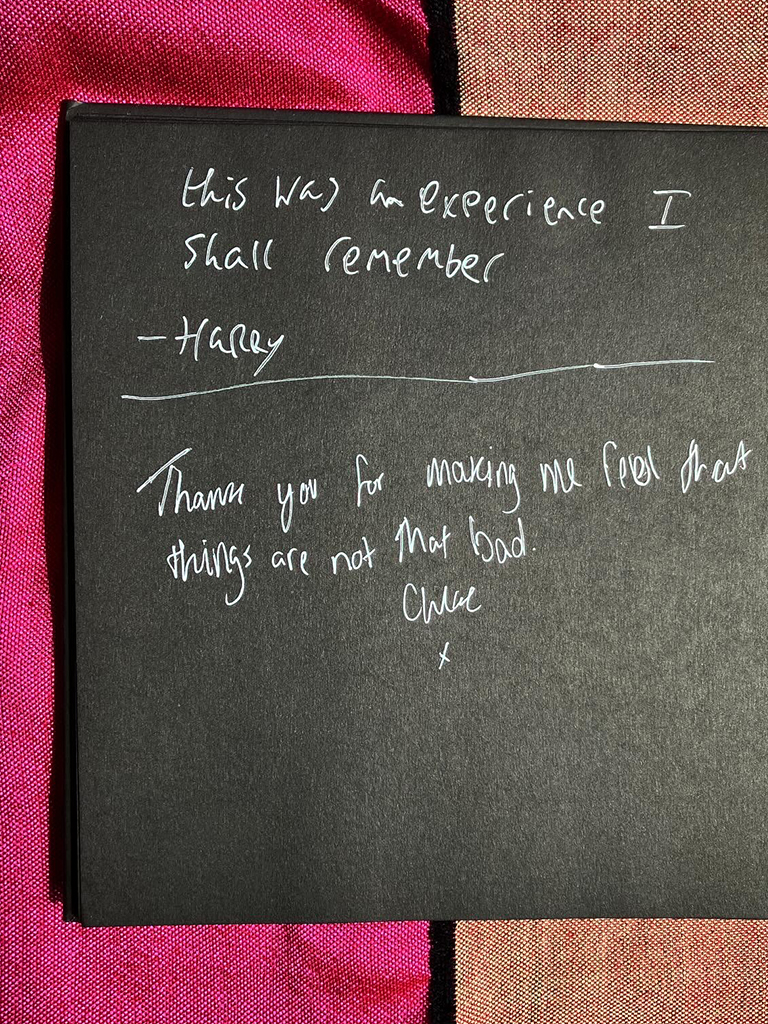 this was an experience I
shall remember
- Harry
Thank you for making me feel that
things are not that bad.
Chloe
x